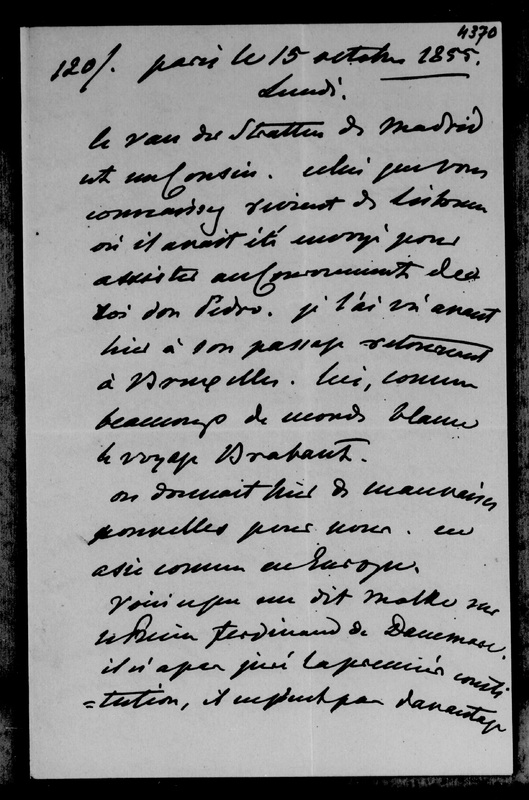 4370
120/. paris le 15 octobre 1855.
Lundi.
le van der Stratten de Madrid
est un Cousin. celui que vous
connaissez revient de Lisbonne
où il avait été envoyé pour
assister au Couronnement du
Roi don Pedro. je l'ai vu avant
hier à son passage retournant
à Bruxelles. lui, comme
beaucoup de monde blame
le voyage Brabant.
on donnait hier de mauvaises
nouvelles pour nous. en
asie comme en Europe.
voici ce que me dit Molke sur
le Prince Ferdinand de Danemarc.
il n'a pas juré la première consti
=tution, il ne jure pas davantage